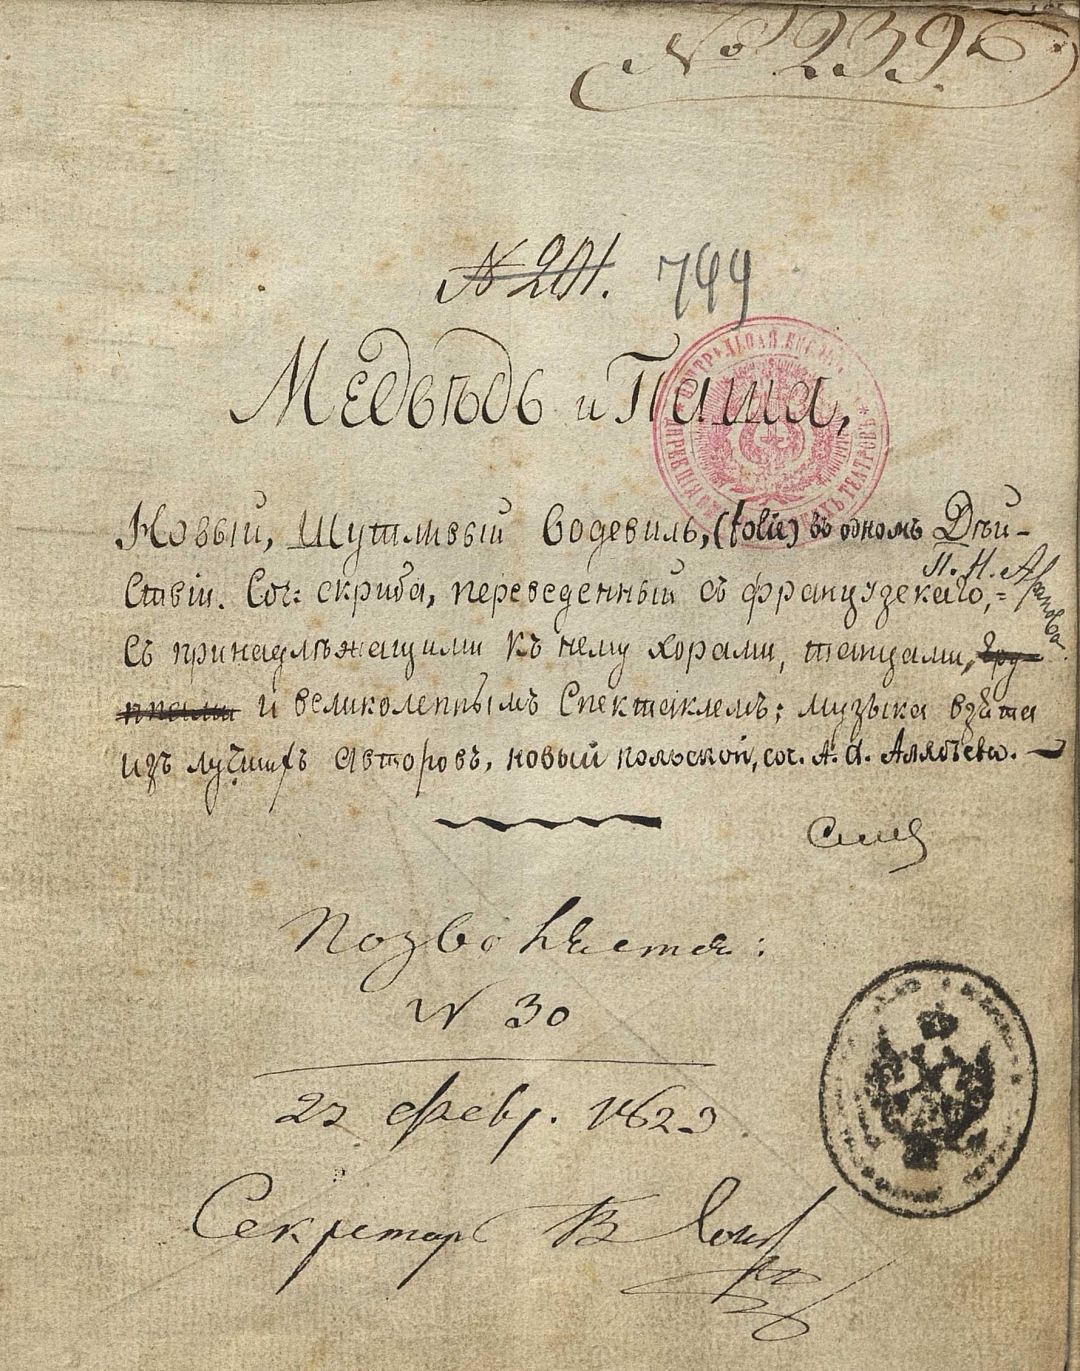 № 2396
№ 201. 749
Медвѣдь и Паша,
Новый, Шутливый Водевиль, (folie) въ одномъ Дѣй-
ствiи. Соч: скриба, переведенный съ французскаго,=
П. Н. Арапова
Съ принадлѣжащими къ нему хорами, танцами, Гру
ппами и великолепнымъ Спектаклемъ; музыка взята
изъ лучшихъ авторовъ, новый польской, соч. А. А. Алябьева.
Позволяется:
N 30
23 февр. 1823
Секретарь В